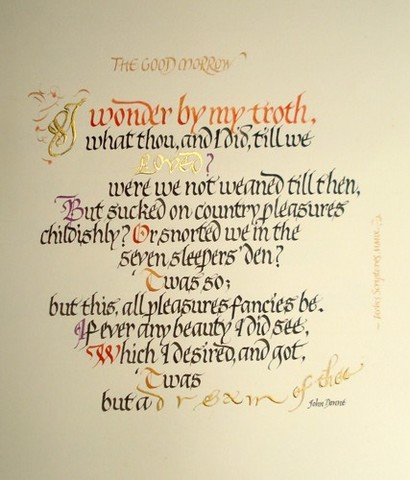 THE GOOD MORROW
I wonder by my troth,
what thou, and I did, till we
LOVED?
were we not weaned till then,
But sucked on country pleasures
childishly? Or, snorted we in the
seven sleepers' den?
'Twas so;
but this, all pleasures fancies be.
If ever any beauty I did see,
Which I desired, and got,
'Twas
but a dream of thee
John Donne